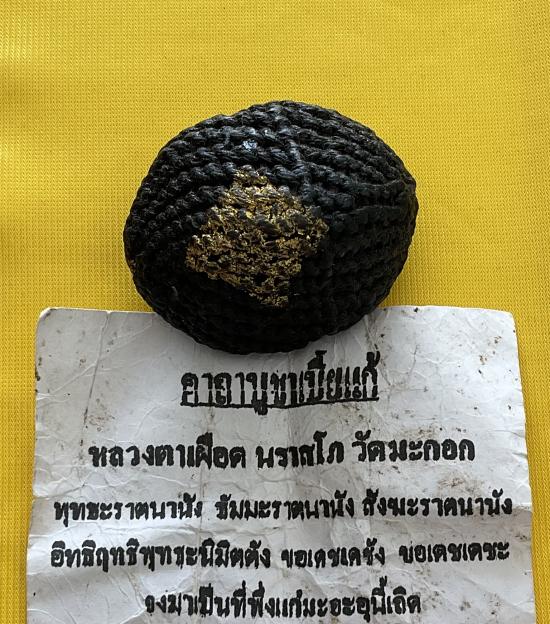 คาถาบูชาเบี้ยแก้
หลวงตาเผือด นราสโภ วัดมะกอก
พุทธะราตนานัง ธัมมะราตนานัง สังฆะราตนานัง
อิทธิฤทธิพุทธะนิมิตตัง ขอเดชเดชัง ขอเดชเดชะ
จงมาเป็นที่พึ่งแก่มะอะอุนี้เถิด